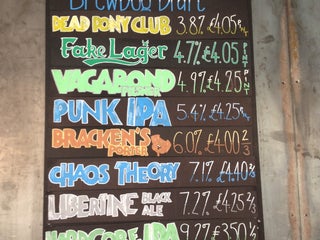 BrewDog Draft
DEAD PONY CLUB 3.8% £4.05 PINT
Fake Lager 4.7% £4.05 PINT
VAGABOND 4.9% £4.25 PINT
PUNK IPA 5.4% £4.25 PINT
BRACKEN'S PORTER 6.0% £4.00 2/3
CHAOS THEORY 7.1% £4.40 2/3
LIBERTINE BLACK ALE 7.2% £4.25 2/3
HARDCORE IPA 9.2% £3.50 1/2